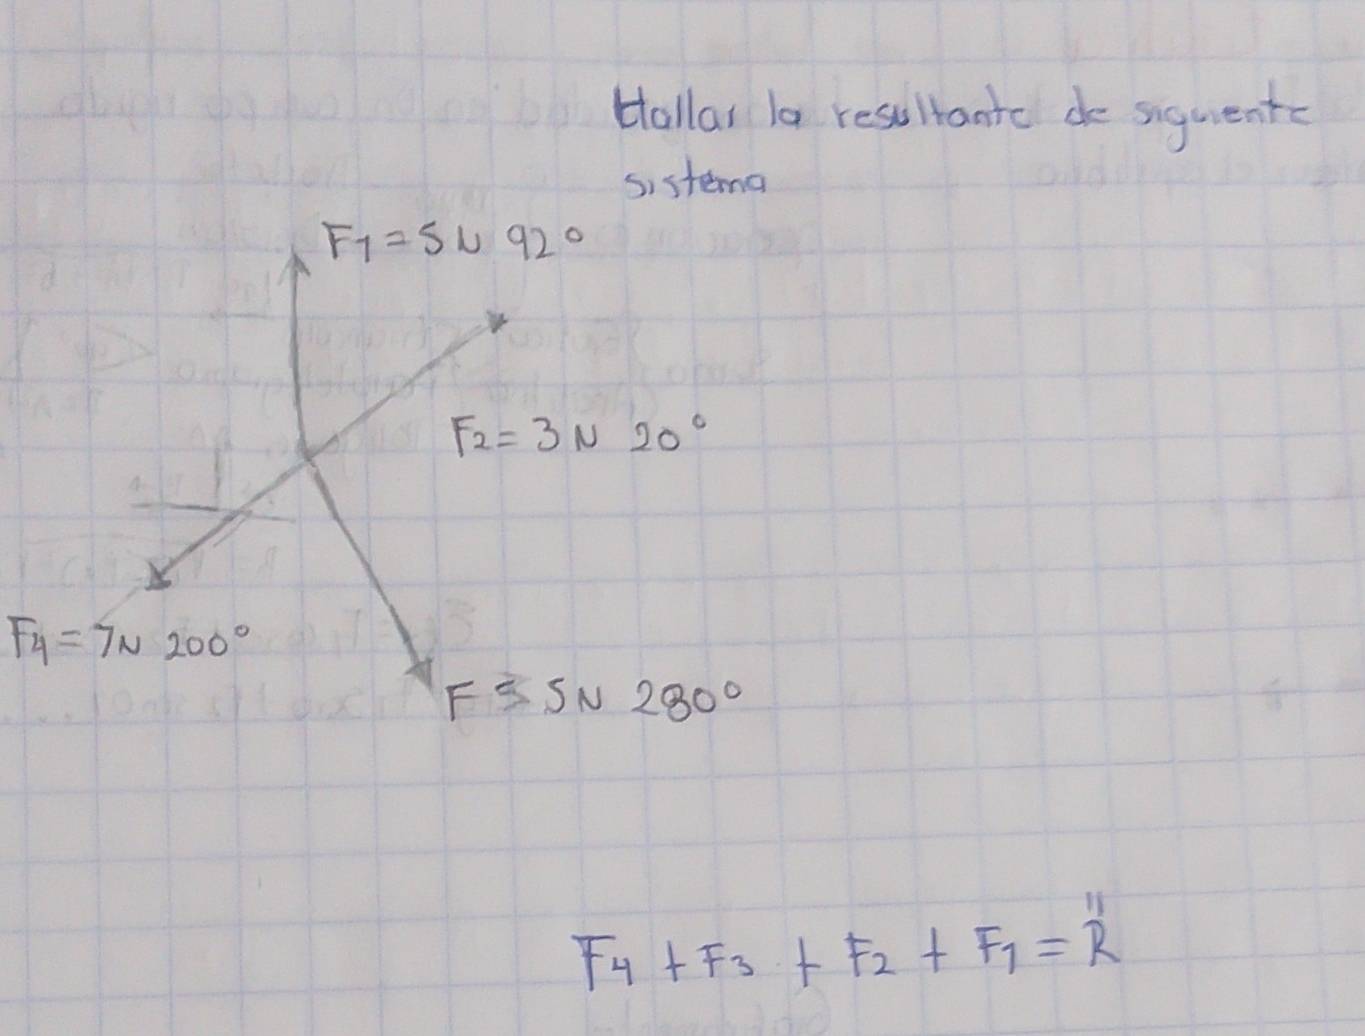 Hallar la resultante de siguiente
sistema
F1 = 5N 92°
F2 = 3N 20°
F4 = 7N 200°
F 5N 280°
F4 + F3 + F2 + F1 = R